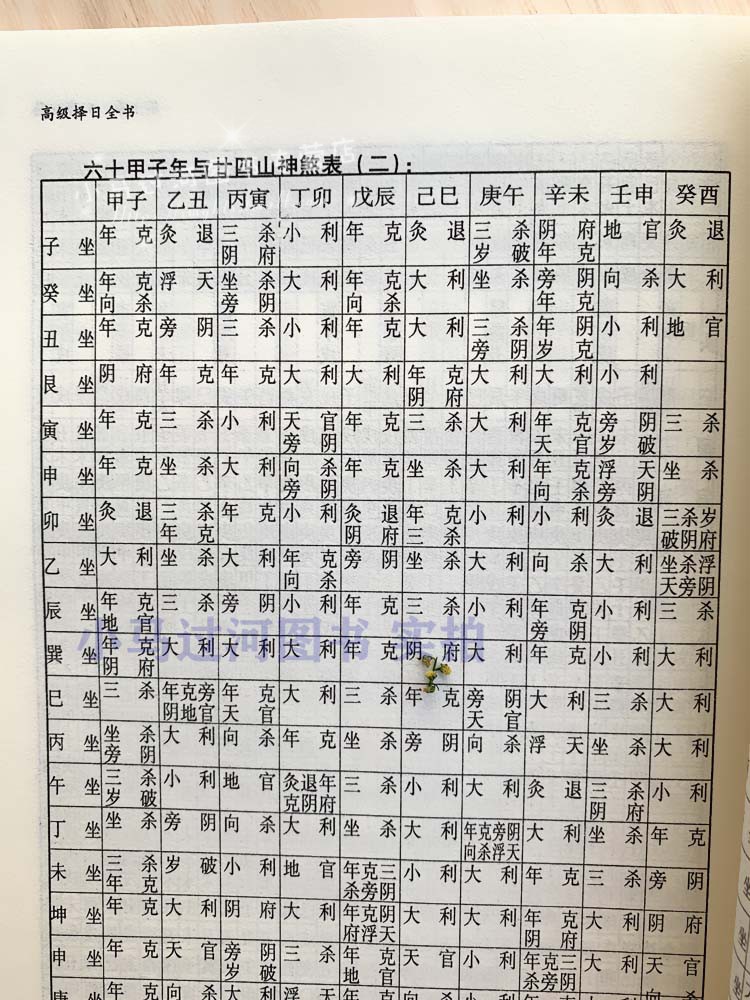 高级择日全书
六十甲子年与廿四山神煞表（二）：
甲子 乙丑 丙寅 丁卯 戊辰 己巳 庚午 辛未 壬申 癸酉
子坐 年克 灸退 三杀阴府 小利 年克 灸退 三杀岁破 阴府年克 地官 灸退
癸坐 年克向杀 浮天 坐杀旁阴 大利 年克向杀 大利 坐杀 旁阴年克 向杀 大利
丑坐 年克 旁阴 三杀 小利 年克 大利 三杀旁阴 年阴岁克 小利 地官
艮坐 阴府 年克 年克 大利 大利 年克阴府 大利 大利 小利
寅坐 年克 三杀 小利 天官旁阴 年克 三杀 大利 年克天官 旁阴岁破 三杀
申坐 年克 坐杀 大利 向杀旁阴 年克 坐杀 大利 年克向杀 浮天旁阴 坐杀
卯坐 灸退 三杀年克 年克 小利 灸退阴府 年克三杀 小利 小利 灸退 三杀岁破阴府
乙坐 大利 坐杀 大利 年克向杀 旁阴 坐杀 大利 向杀 大利 坐杀浮天旁阴
辰坐 年克地官 三杀 旁阴 小利 年克 三杀 小利 年克旁阴 小利 三杀
巽坐 年克阴府 大利 大利 大利 年克 阴府 大利 年克 小利 大利
巳坐 三杀 年克旁阴地官 年克天官 大利 三杀 年克 旁阴天官 大利 三杀 大利
丙坐 坐杀旁阴 大利 向杀 年克 坐杀 旁阴 向杀 浮天 坐杀 大利
午坐 三杀岁破 小利 地官 灸退年克阴府 三杀 小利 大利 灸退 三杀阴府 小利
丁坐 坐杀 旁阴 向杀 大利 坐杀 大利 年克旁阴向杀浮天 大利 坐杀 年克
未坐 三杀年克 岁破 小利 地官 年克三杀旁阴 小利 大利 年克 三杀 旁阴
坤坐 年克 大利 阴府 大利 年克阴府浮天 大利 大利 年克阴府 大利 阴府
申坐 年克 天官 旁阴岁破 三杀 年克地官 天官 小利 年克三杀旁阴 大利 天官
年克 向杀 大利 浮天 年克 向杀
小马过河图书 实拍